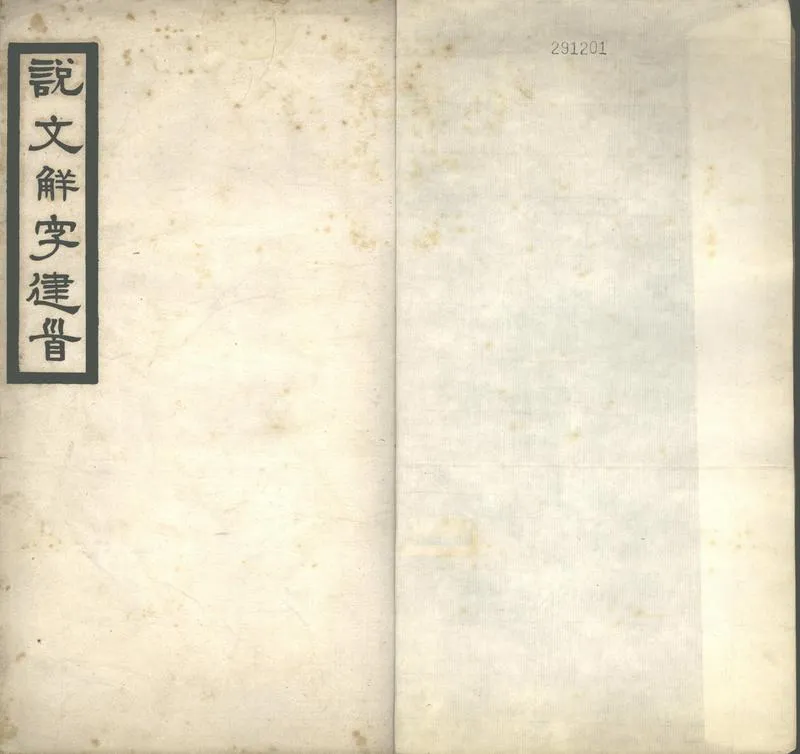 說文解字建首
291201